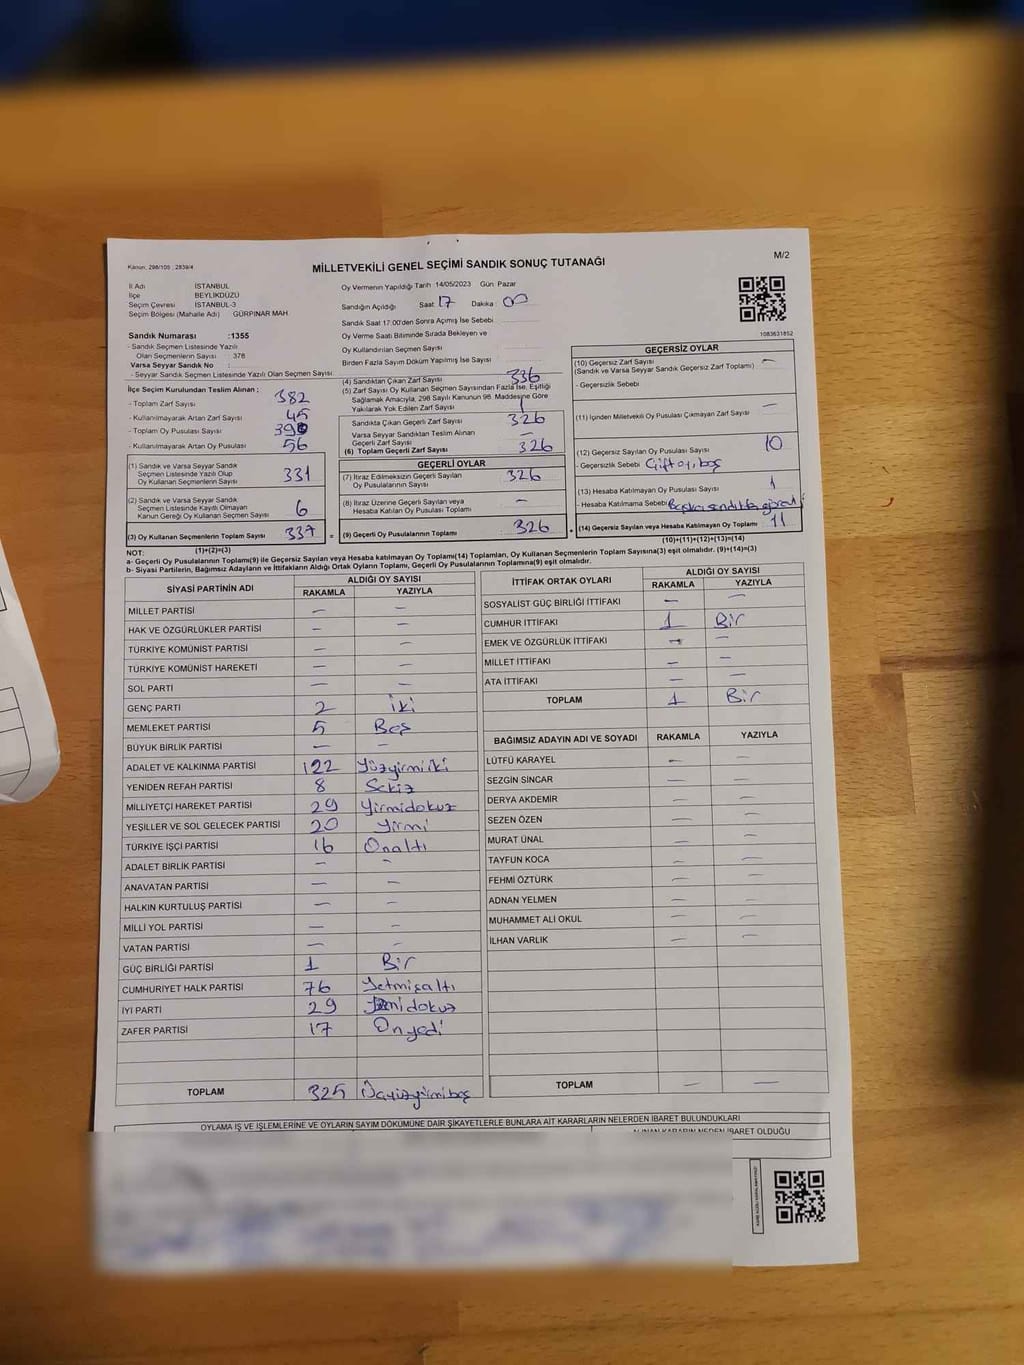 Kanun: 298/105 ; 2839/4
M/2
MİLLETVEKİLİ GENEL SEÇİMİ SANDIK SONUÇ TUTANAĞI
İl Adı İSTANBUL
İlçe BEYLİKDÜZÜ
Seçim Çevresi İSTANBUL-3
Seçim Bölgesi (Mahalle Adı) GÜRPINAR MAH.
Sandık Numarası :1355
- Sandık Seçmen Listesinde Yazılı
Olan Seçmenlerin Sayısı : 378
Varsa Seyyar Sandık No :
- Seyyar Sandık Seçmen Listesinde Yazılı Olan Seçmen Sayısı:
Oy Vermenin Yapıldığı Tarih 14/05/2023 Gün Pazar
Sandığın Açıldığı Saat 17 Dakika 00
Sandık Saat 17:00'den Sonra Açılmış İse Sebebi
Oy Verme Saati Bitiminde Sırada Bekleyen ve
Oy Kullandırılan Seçmen Sayısı
Birden Fazla Sayım Döküm Yapılmış İse Sayısı
1083631852
İlçe Seçim Kurulundan Teslim Alınan ;
- Toplam Zarf Sayısı 382
- Kullanılmayarak Artan Zarf Sayısı 45
- Toplam Oy Pusulası Sayısı
- Kullanılmayarak Artan Oy Pusulası 56
(1) Sandık ve Varsa Seyyar Sandık
Seçmen Listesinde Yazılı Olup
Oy Kullanan Seçmenlerin Sayısı 331
(2) Sandık ve Varsa Seyyar Sandık
Seçmen Listesinde Kayıtlı Olmayan
Kanun Gereği Oy Kullanan Seçmen Sayısı 6
(3) Oy Kullanan Seçmenlerin Toplam Sayısı 337 =
(4) Sandıktan Çıkan Zarf Sayısı 336
(5) Zarf Sayısı Oy Kullanan Seçmen Sayısından Fazla İse, Eşitliği
Sağlamak Amacıyla, 298 Sayılı Kanunun 98. Maddesine Göre
Yakılarak Yok Edilen Zarf Sayısı
Sandıkta Çıkan Geçerli Zarf Sayısı 326
Varsa Seyyar Sandıktan Teslim Alınan
Geçerli Zarf Sayısı —
(6) Toplam Geçerli Zarf Sayısı 326
GEÇERLİ OYLAR
(7) İtiraz Edilmeksizin Geçerli Sayılan
Oy Pusulalarının Sayısı 326
(8) İtiraz Üzerine Geçerli Sayılan veya
Hesaba Katılan Oy Pusulası Toplamı —
(9) Geçerli Oy Pusulalarının Toplamı 326 +
GEÇERSİZ OYLAR
(10) Geçersiz Zarf Sayısı —
(Sandık ve Varsa Seyyar Sandık Geçersiz Zarf Toplamı)
- Geçersizlik Sebebi
(11) İçinden Milletvekili Oy Pusulası Çıkmayan Zarf Sayısı —
(12) Geçersiz Sayılan Oy Pusulası Sayısı 10
- Geçersizlik Sebebi Çift oy, boş
(13) Hesaba Katılmayan Oy Pusulası Sayısı 1
- Hesaba Katılmama Sebebi Başka sandıkta
(14) Geçersiz Sayılan veya Hesaba Katılmayan Oy Toplamı 11
NOT: (1)+(2)=(3) (10)+(11)+(12)+(13)=(14)
a- Geçerli Oy Pusulalarının Toplamı(9) ile Geçersiz Sayılan veya Hesaba katılmayan Oy Toplamı(14) Toplamları, Oy Kullanan Seçmenlerin Toplam Sayısına(3) eşit olmalıdır. (9)+(14)=(3)
b- Siyasi Partilerin, Bağımsız Adayların ve İttifakların Aldığı Ortak Oyların Toplamı, Geçerli Oy Pusulalarının Toplamına(9) eşit olmalıdır.
SİYASİ PARTİNİN ADI ALDIĞI OY SAYISI
RAKAMLA YAZIYLA
MİLLET PARTİSİ — —
HAK VE ÖZGÜRLÜKLER PARTİSİ — —
TÜRKİYE KOMÜNİST PARTİSİ — —
TÜRKİYE KOMÜNİST HAREKETİ — —
SOL PARTİ — —
GENÇ PARTİ 2 İki
MEMLEKET PARTİSİ 5 Beş
BÜYÜK BİRLİK PARTİSİ — —
ADALET VE KALKINMA PARTİSİ 122 Yüzyirmiiki
YENİDEN REFAH PARTİSİ 8 Sekiz
MİLLİYETÇİ HAREKET PARTİSİ 29 Yirmidokuz
YEŞİLLER VE SOL GELECEK PARTİSİ 20 Yirmi
TÜRKİYE İŞÇİ PARTİSİ 16 Onaltı
ADALET BİRLİK PARTİSİ — —
ANAVATAN PARTİSİ — —
HALKIN KURTULUŞ PARTİSİ — —
MİLLİ YOL PARTİSİ — —
VATAN PARTİSİ — —
GÜÇ BİRLİĞİ PARTİSİ 1 Bir
CUMHURİYET HALK PARTİSİ 76 Yetmişaltı
İYİ PARTİ 29
ZAFER PARTİSİ 17 Onyedi
TOPLAM 325 Üçyüzyirmibeş
İTTİFAK ORTAK OYLARI ALDIĞI OY SAYISI
RAKAMLA YAZIYLA
SOSYALİST GÜÇ BİRLİĞİ İTTİFAKI — —
CUMHUR İTTİFAKI 1 Bir
EMEK VE ÖZGÜRLÜK İTTİFAKI — —
MİLLET İTTİFAKI — —
ATA İTTİFAKI — —
TOPLAM 1 Bir
BAĞIMSIZ ADAYIN ADI VE SOYADI RAKAMLA YAZIYLA
LÜTFÜ KARAYEL — —
SEZGİN SİNCAR — —
DERYA AKDEMİR — —
SEZEN ÖZEN — —
MURAT ÜNAL — —
TAYFUN KOCA — —
FEHMİ ÖZTÜRK — —
ADNAN YELMEN — —
MUHAMMET ALİ OKUL — —
İLHAN VARLIK — —
TOPLAM — —
OYLAMA İŞ VE İŞLEMLERİNE VE OYLARIN SAYIM DÖKÜMÜNE DAİR ŞİKAYETLERLE BUNLARA AİT KARARLARIN NELERDEN İBARET BULUNDUKLARI
ALINAN KARARIN NEDEN İBARET OLDUĞU